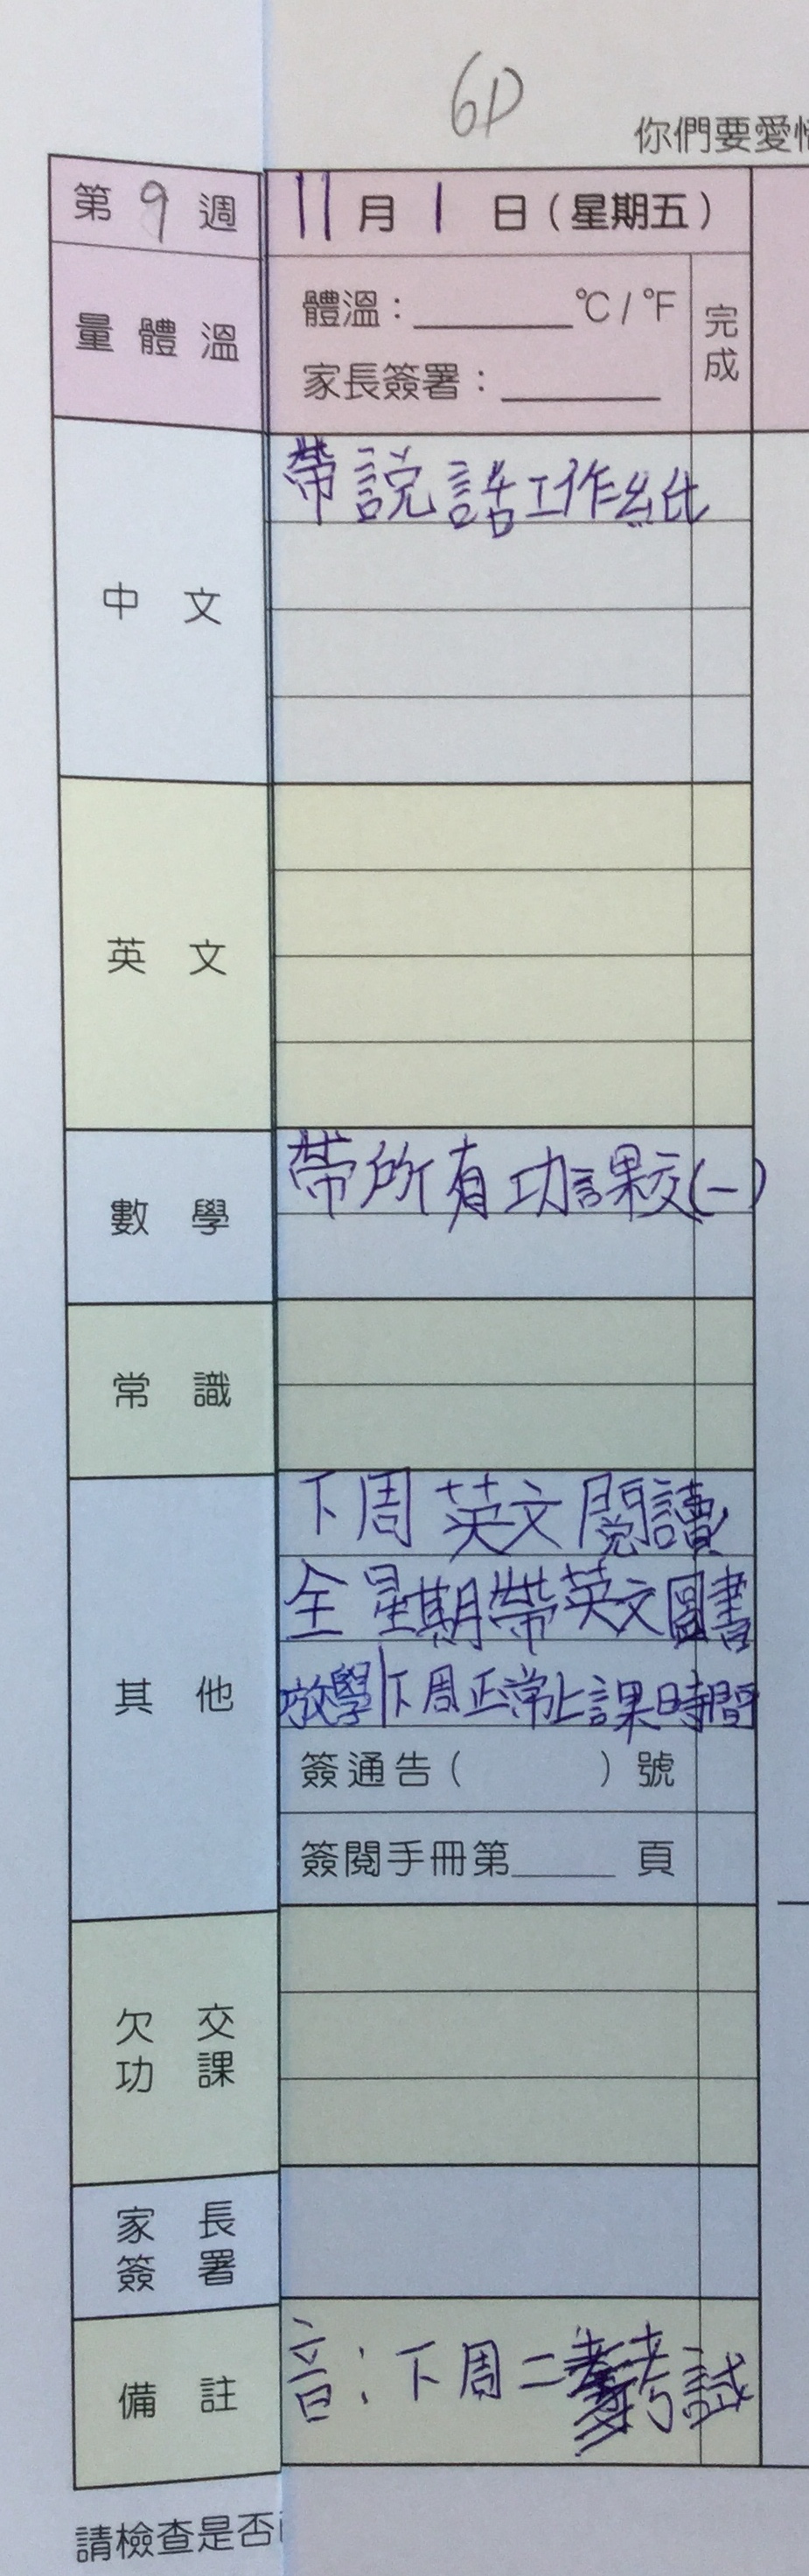 6D
你們要愛惜
第 9 週
11 月 1 日（星期五）
量體溫
體溫：______°C / °F
家長簽署：______
完成
中文
帶說話工作紙
英文
數學
帶所有功課交(一)
常識
其他
下周英文閱讀
全星期帶英文圖書
放學|下周正常上課時間
簽通告（ ）號
簽閱手冊第____頁
欠交
功課
家長
簽署
備註
音：下周二考試
請檢查是否